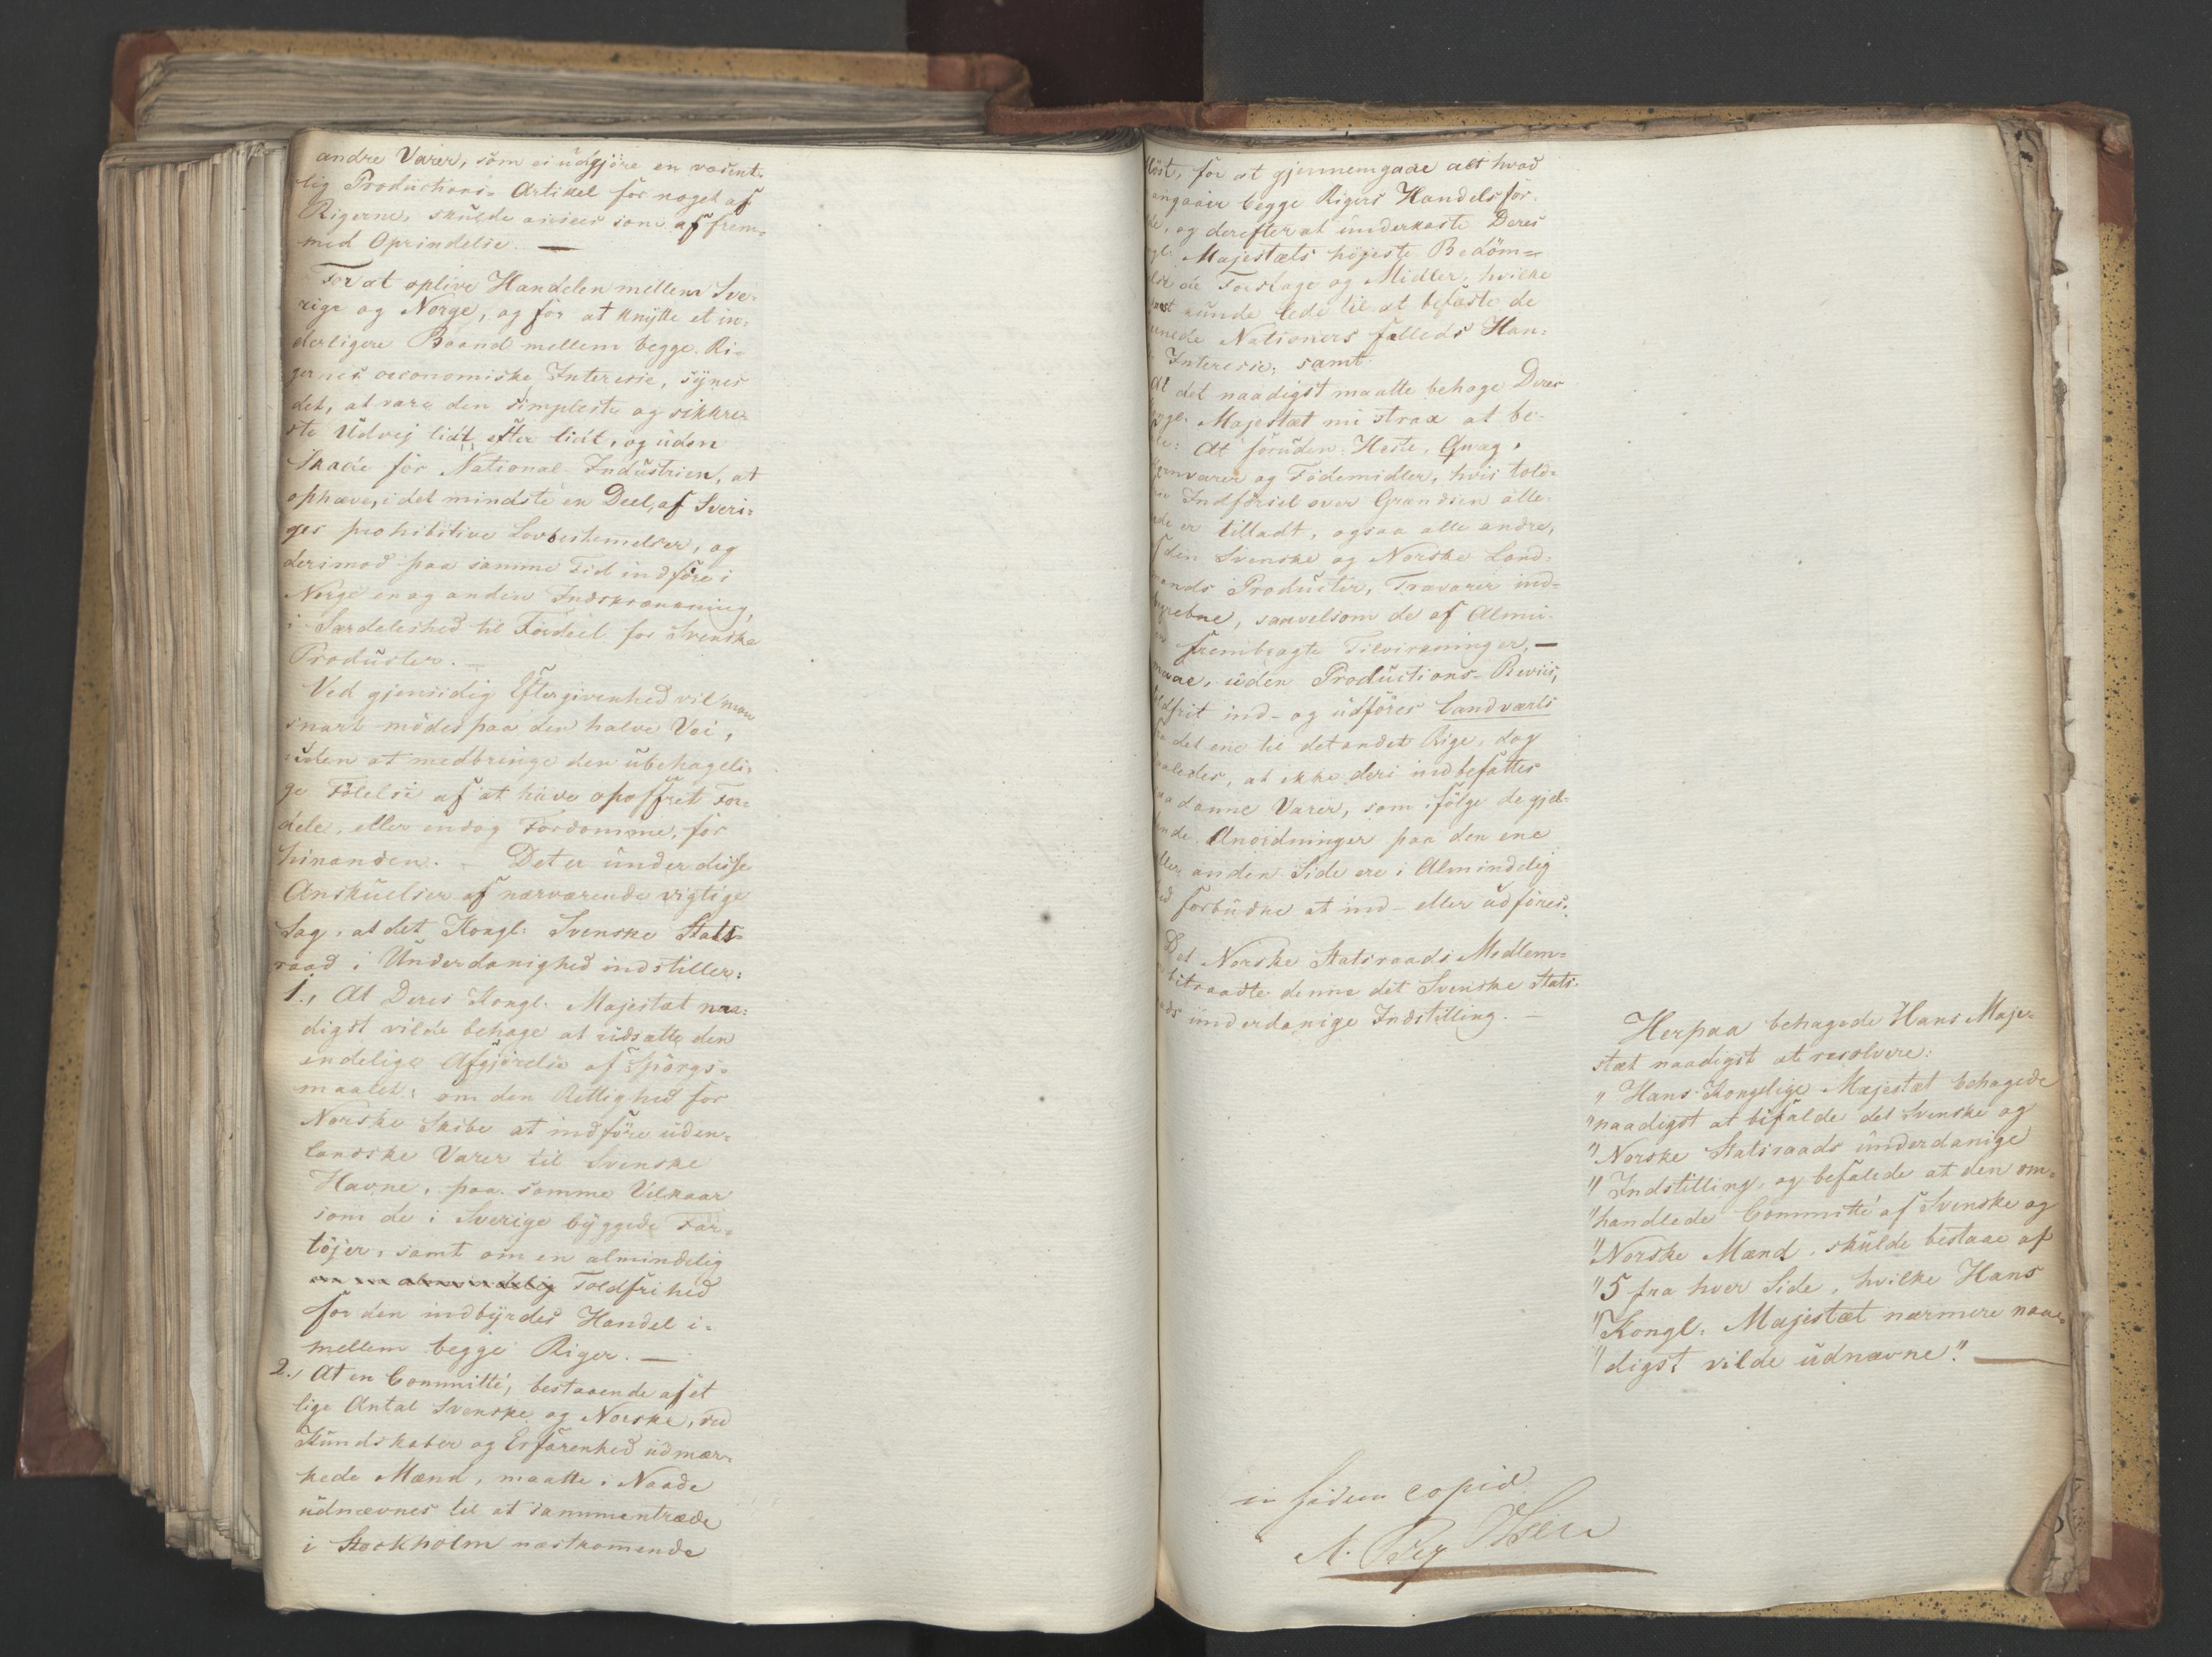 andre Varer, som ei udgjöre en væsent-
lig Productions- Artikel for noget af
Rigerne, skulde ansees som af frem-
med Oprindelse. —
For at oplive Handelen mellem Sve-
rige og Norge, og for at knytte et in-
derligere Baand mellem begge Ri-
gernes oeconomiske Interesse, synes
det, at være den simpleste og sikkre-
ste Udvej lidt efter lidt, og uden
Skade for National-Industrien, at
ophæve, i det mindste en Deel, af Sveri-
ges prohibitive Lovbestemelser, og
derimod paa samme Tid indföre i
Norge en og anden Indskrænkning,
i Særdeleshed til Fordeel for Svenske
Producter. —
Ved gjensidig Eftergivenhed vil man
snart mödes paa den halve Vei,
uden at medbringe den ubehageli-
ge Fölelse af at have opoffret For-
dele, eller endog Fordomme, for
hinanden. — Det er under disse
Anskuelser af nærværende vigtige
Sag, at det Kongl: Svenske Stats-
raad i Underdanighed indstiller:
1., At Deres Kongl: Majestæt naa-
digst vilde behage at udsætte den
endelige Afgjörelse af Spörgs-
maalet: om den Rettighed for
Norske Skibe at indföre uden-
landske Varer til Svenske
Havne, paa samme Vilkaar
som de i Sverige byggede Far-
töjer, samt om en almindelig
om en almindelig Toldfrihed
for den indbyrdes Handel i-
mellem begge Riger. —
2., At en Committé, bestaaende af et
lige Antal Svenske og Norske, ved
Kundskaber og Erfarenhed udmær-
kede Mænd, maatte i Naade
udnævnes til at sammentræde
i Stockholm næstkomende
Höst, for at gjennemgaae alt hvad
angaaer begge Rigers Handelsfor-
og derefter at underkaste Deres
Majestæts höjeste Bedöm-
de Forslage og Midler, hvilke
kunde lede til at befæste de
Nationers fælleds Han-
Interesse, samt
At det naadigst maatte behage Deres
Kongl: Majestæt nu strax at be-
At foruden Heste, Qvæg,
Jernvarer og Födemidler, hvis told-
Indförsel over Grændsen alle-
er tilladt, ogsaa alle andre,
den Svenske og Norske Land-
mands Producter, Trævarer ind-
begrebne, saavelsom de af Almu-
frembragte Tilvirkninger, —
maae, uden Productions-Beviis,
toldfrit ind- og udföres landværts
det ene til det andet Rige, dog
saaledes, at ikke deri indbefattes
saadanne Varer, som ifölge de gjel-
dende Anordninger paa den ene
eller anden Side ere i Almindelig-
hed forbudne at ind- eller udföres.
Det Norske Statsraads Medlem-
bitraadte denne det Svenske Stats-
raads underdanige Indstilling. —
Herpaa behagede Hans Maje-
stæt naadigst at resolvere:
"Hans Kongelige Majestæt behagede
"naadigst at bifalde det Svenske og
"Norske Statsraads underdanige
"Indstilling, og befalede at den om-
"handlede Committé af Svenske og
"Norske Mænd, skulde bestaae af
"5 fra hver Side, hvilke Hans
"Kongl: Majestæt nærmere naa-
"digst vilde udnævne". —
in fidem copiæ